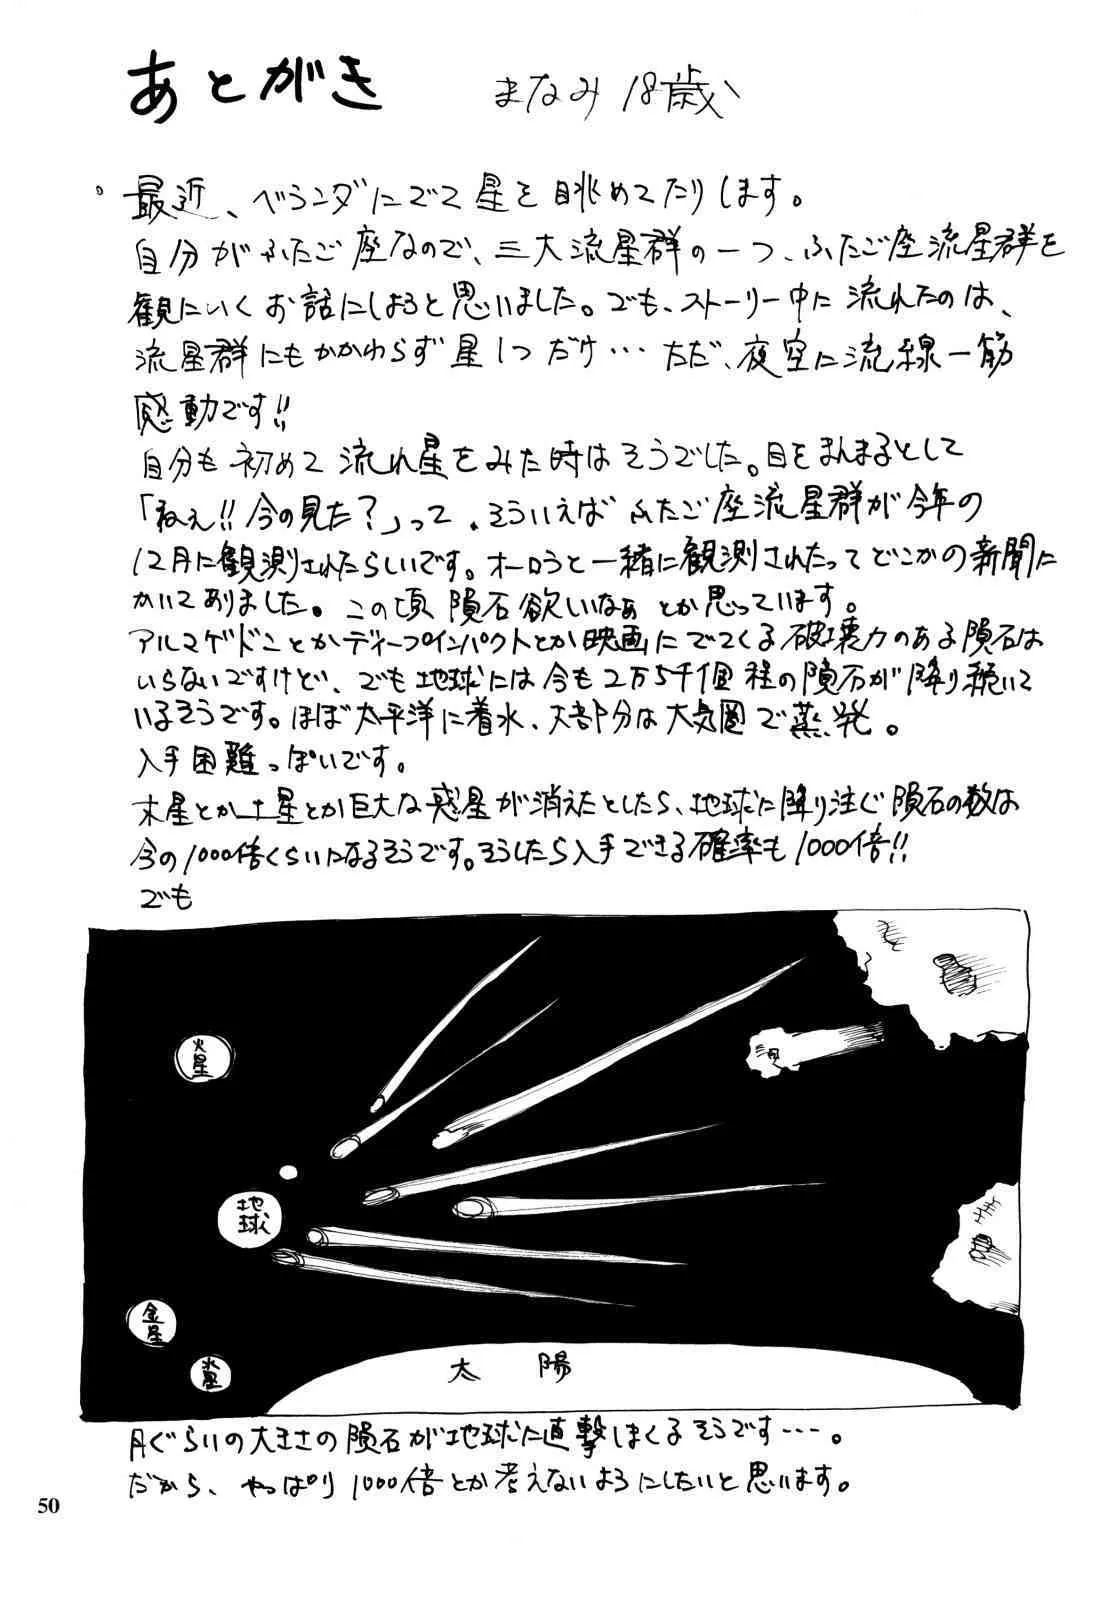 あとがき まなみ 18歳
。最近、ベランダにでて星を眺めてたりします。
自分がふたご座なので、三大流星群の一つ、ふたご座流星群を
観にいくお話にしようと思いました。でも、ストーリー中に流れたのは、
流星群にもかかわらず星1つだけ… ただ、夜空に流線一筋
感動です!!
自分も初めて流れ星をみた時はそうでした。目をまんまるとして
「ねぇ!!今の見た?」って。そういえばふたご座流星群が今年の
12月に観測されたらしいです。オーロラと一緒に観測されたってどこかの新聞に
かいてありました。この頃隕石欲しいなぁとか思っています。
アルマゲドンとかディープインパクトとか映画にでてくる破壊力のある隕石は
いらないですけど、でも地球には今も2万5千個程の隕石が降り続いて
いるそうです。ほぼ太平洋に着水、大部分は大気圏で蒸発。
入手困難っぽいです。
木星とか土星とか巨大な惑星が消えたとしたら、地球に降り注ぐ隕石の数は
今の1000倍くらいになるそうです。そうしたら入手できる確率も1000倍!!
でも
火星
地球
金星
水星
太陽
月ぐらいの大きさの隕石が地球に直撃しまくるそうです…。
だから、やっぱり1000倍とか考えないようにしたいと思います。
50